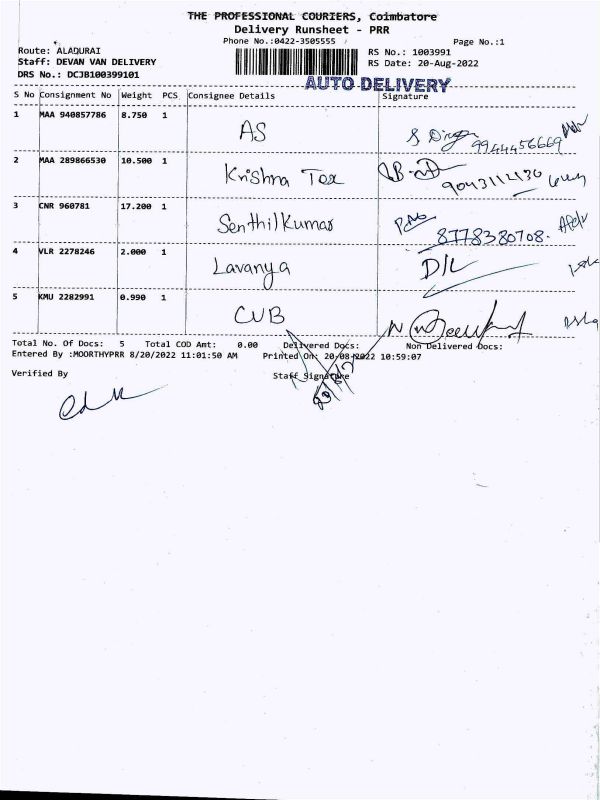 THE PROFESSIONAL COURIERS, Coimbatore
Delivery Runsheet - PRR
Phone No.:0422-3505555 Page No.:1
Route: ALAQURAI RS No.: 1003991
Staff: DEVAN VAN DELIVERY RS Date: 20-Aug-2022
DRS No.: DCJB100399101
AUTO DELIVERY
S No Consignment No Weight PCS Consignee Details Signature
1 MAA 940857786 8.750 1 AS 9944456669
2 MAA 289866530 10.500 1 Krishna Tex 9043111430
3 CNR 960781 17.200 1 Senthilkumar 8778380708
4 VLR 2278246 2.000 1 Lavanya D/L
5 KMU 2282991 0.990 1 CUB
Total No. Of Docs: 5 Total COD Amt: 0.00 Delivered Docs: Non Delivered Docs:
Entered By :MOORTHYPRR 8/20/2022 11:01:50 AM Printed On: 20-08-2022 10:59:07
Verified By Staff Signature